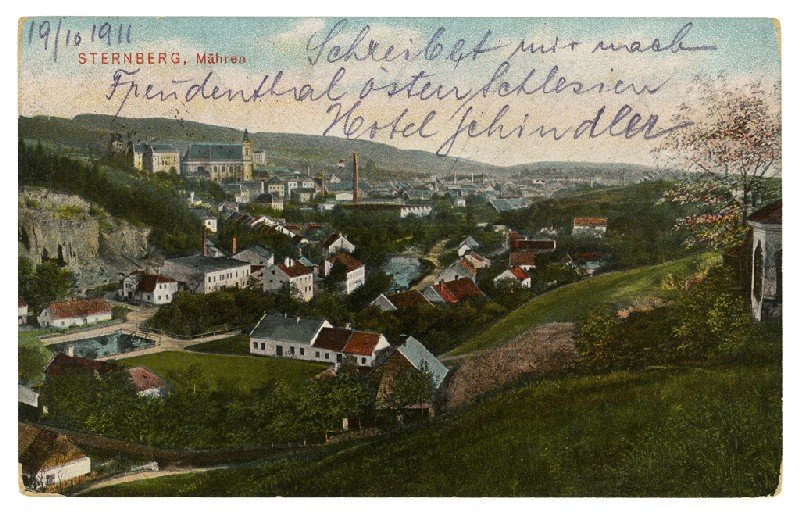 19/10 1911
STERNBERG, Mähren
Schreibet mir nach
Freudenthal östen Schlesien
Hotel Schindler